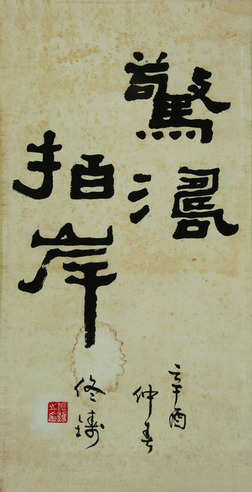 驚濤
拍岸
辛酉
仲春